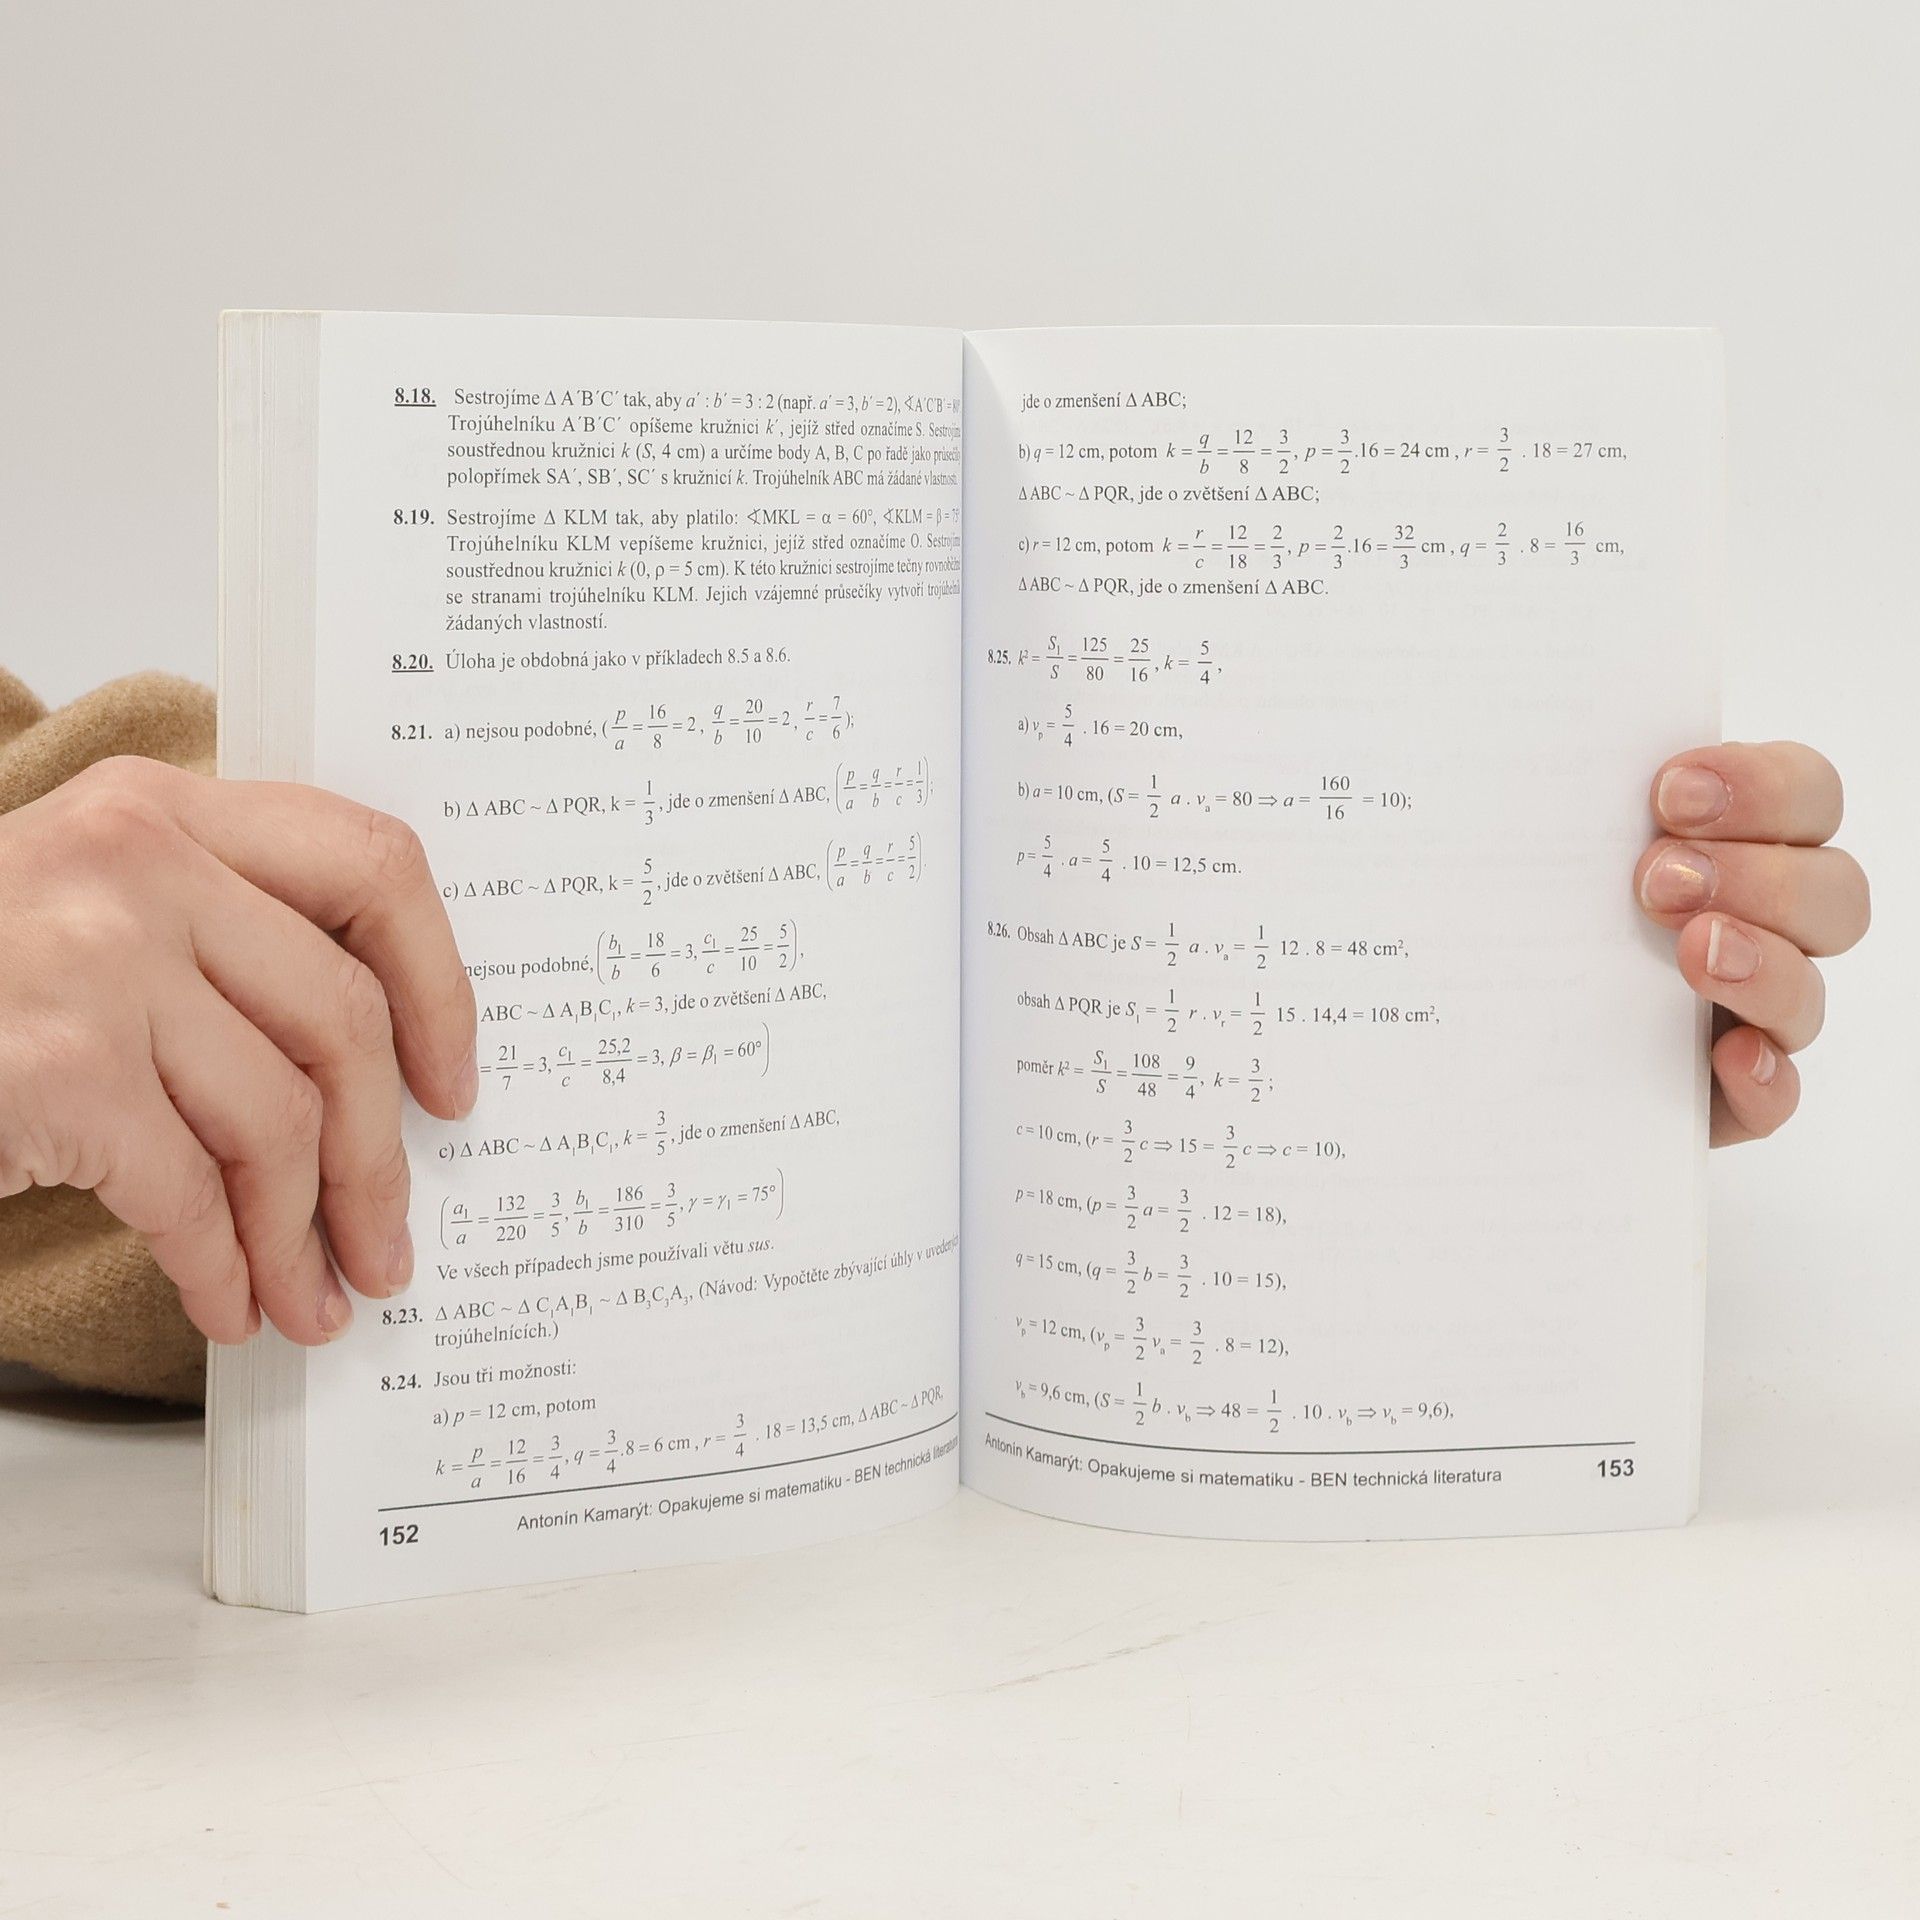 8.18. Sestrojíme Δ A´B´C´ tak, aby a´ : b´ = 3 : 2 (např. a´ = 3, b´ = 2), ∢A´C´B´ = 80°
Trojúhelníku A´B´C´ opíšeme kružnici k´, jejíž střed označíme S. Sestrojíme
soustřednou kružnici k (S, 4 cm) a určíme body A, B, C po řadě jako průsečíky
polopřímek SA´, SB´, SC´ s kružnicí k. Trojúhelník ABC má žádané vlastnosti.
8.19. Sestrojíme Δ KLM tak, aby platilo: ∢MKL = α = 60°, ∢KLM = β = 75°
Trojúhelníku KLM vepíšeme kružnici, jejíž střed označíme O. Sestrojíme
soustřednou kružnici k (0, ρ = 5 cm). K této kružnici sestrojíme tečny rovnoběžné
se stranami trojúhelníku KLM. Jejich vzájemné průsečíky vytvoří trojúhelník
žádaných vlastností.
8.20. Úloha je obdobná jako v příkladech 8.5 a 8.6.
8.21. a) nejsou podobné, (p/a = 16/8 = 2, q/b = 20/10 = 2, r/c = 7/6);
b) Δ ABC ~ Δ PQR, k = 1/3, jde o zmenšení Δ ABC, (p/a = q/b = r/c = 1/3);
c) Δ ABC ~ Δ PQR, k = 5/2, jde o zvětšení Δ ABC, (p/a = q/b = r/c = 5/2).
nejsou podobné, (b₁/b = 18/6 = 3, c₁/c = 25/10 = 5/2),
ABC ~ Δ A₁B₁C₁, k = 3, jde o zvětšení Δ ABC,
= 21/7 = 3, c₁/c = 25,2/8,4 = 3, β = β₁ = 60°)
c) Δ ABC ~ Δ A₁B₁C₁, k = 3/5, jde o zmenšení Δ ABC,
(a₁/a = 132/220 = 3/5, b₁/b = 186/310 = 3/5, γ = γ₁ = 75°)
Ve všech případech jsme používali větu sus.
8.23. Δ ABC ~ Δ C₁A₁B₁ ~ Δ B₃C₃A₃, (Návod: Vypočtěte zbývající úhly v uvedených
trojúhelnících.)
8.24. Jsou tři možnosti:
a) p = 12 cm, potom
k = p/a = 12/16 = 3/4, q = 3/4 . 8 = 6 cm, r = 3/4 . 18 = 13,5 cm, Δ ABC ~ Δ PQR,
152 Antonín Kamarýt: Opakujeme si matematiku - BEN technická literatura
jde o zmenšení Δ ABC;
b) q = 12 cm, potom k = q/b = 12/8 = 3/2, p = 3/2 .16 = 24 cm, r = 3/2 . 18 = 27 cm,
Δ ABC ~ Δ PQR, jde o zvětšení Δ ABC;
c) r = 12 cm, potom k = r/c = 12/18 = 2/3, p = 2/3 .16 = 32/3 cm, q = 2/3 . 8 = 16/3 cm,
Δ ABC ~ Δ PQR, jde o zmenšení Δ ABC.
8.25. k² = S₁/S = 125/80 = 25/16, k = 5/4,
a) vₚ = 5/4 . 16 = 20 cm,
b) a = 10 cm, (S = 1/2 a . vₐ = 80 ⇒ a = 160/16 = 10);
p = 5/4 . a = 5/4 . 10 = 12,5 cm.
8.26. Obsah Δ ABC je S = 1/2 a . vₐ = 1/2 12 . 8 = 48 cm²,
obsah Δ PQR je S₁ = 1/2 r . vᵣ = 1/2 15 . 14,4 = 108 cm²,
poměr k² = S₁/S = 108/48 = 9/4, k = 3/2;
c = 10 cm, (r = 3/2 c ⇒ 15 = 3/2 c ⇒ c = 10),
p = 18 cm, (p = 3/2 a = 3/2 . 12 = 18),
q = 15 cm, (q = 3/2 b = 3/2 . 10 = 15),
vₚ = 12 cm, (vₚ = 3/2 vₐ = 3/2 . 8 = 12),
v_b = 9,6 cm, (S = 1/2 b . v_b ⇒ 48 = 1/2 . 10 . v_b ⇒ v_b = 9,6),
Antonín Kamarýt: Opakujeme si matematiku - BEN technická literatura 153